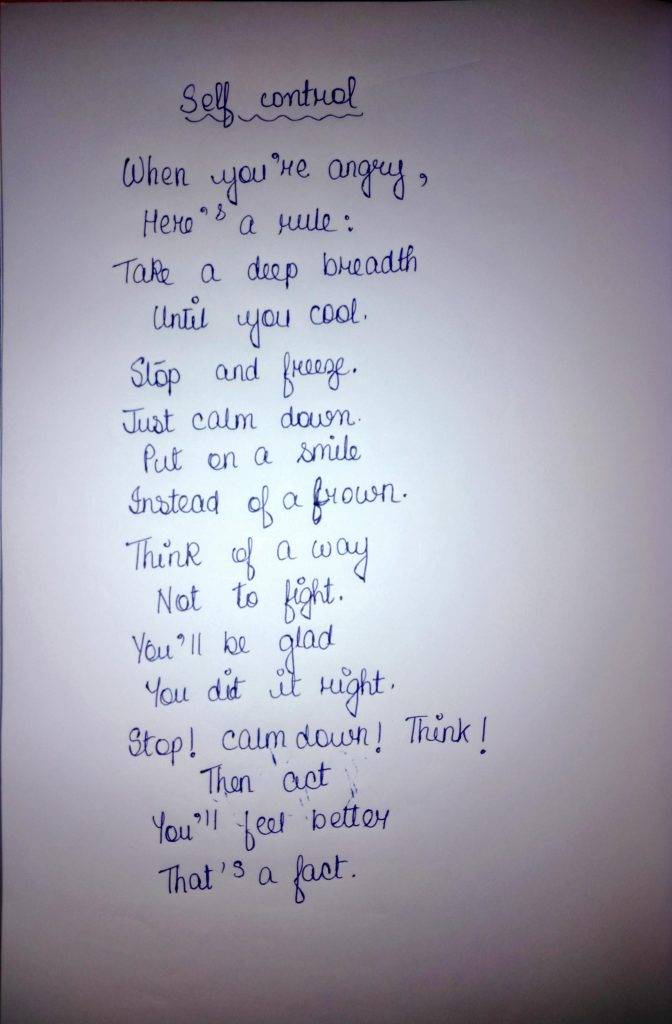 Self control
When you're angry,
Here's a rule:
Take a deep breadth
Until you cool.
Stop and freeze.
Just calm down.
Put on a smile
Instead of a frown.
Think of a way
Not to fight.
You'll be glad
You did it right.
Stop! calm down! Think!
Then act
You'll feel better
That's a fact.